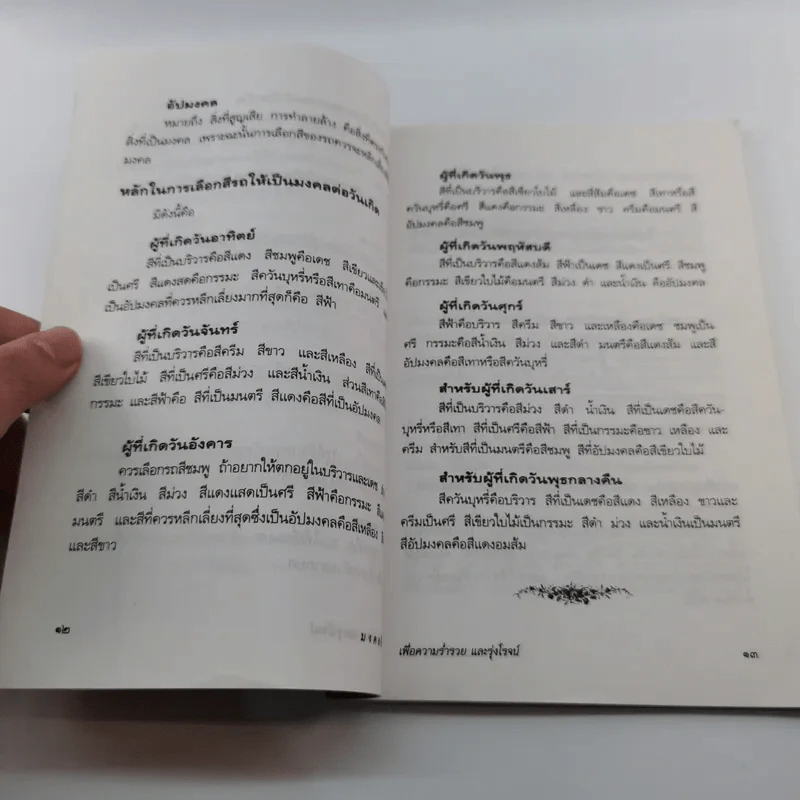 อัปมงคล
หมายถึง สิ่งที่สูญเสีย การทำลายล้าง คือสิ่งที่ตรง
สิ่งที่เป็นมงคล เพราะฉะนั้นการเลือกสีของรถควรจะหลีกเลี่ยง
มงคล
หลักในการเลือกสีรถให้เป็นมงคลต่อวันเกิด
มีดังนี้คือ
ผู้ที่เกิดวันอาทิตย์
สีที่เป็นบริวารคือสีแดง สีชมพูคือเดช สีเขียว
เป็นศรี สีแดงสดคือกรรมะ สีควันบุหรี่หรือสีเทาคือมนตรี
เป็นอัปมงคลที่ควรหลีกเลี่ยงมากที่สุดก็คือ สีฟ้า
ผู้ที่เกิดวันจันทร์
สีที่เป็นบริวารคือสีครีม สีขาว และสีเหลือง สีที่เป็น
สีเขียวใบไม้ สีที่เป็นศรีคือสีม่วง และสีน้ำเงิน ส่วนสีเทาคือ
กรรมะ และสีฟ้าคือ สีที่เป็นมนตรี สีแดงคือสีที่เป็นอัปมงคล
ผู้ที่เกิดวันอังคาร
ควรเลือกรถสีชมพู ถ้าอยากให้ตกอยู่ในบริวารและเดช
สีดำ สีน้ำเงิน สีม่วง สีแดงแสดเป็นศรี สีฟ้าคือกรรมะ
มนตรี และสีที่ควรหลีกเลี่ยงที่สุดซึ่งเป็นอัปมงคลคือสีเหลือง
และสีขาว
๑๒
ผู้ที่เกิดวันพุธ
สีที่เป็นบริวารคือสีเขียวใบไม้ และสีส้มคือเดช สีเทาหรือสี
ควันบุหรี่คือศรี สีแดงคือกรรมะ สีเหลือง ขาว ครีมคือมนตรี สี
อัปมงคลคือสีชมพู
ผู้ที่เกิดวันพฤหัสบดี
สีที่เป็นบริวารคือสีแดงส้ม สีฟ้าเป็นเดช สีแดงเป็นศรี สีชมพู
คือกรรมะ สีเขียวใบไม้คือมนตรี สีม่วง ดำ และน้ำเงิน คืออัปมงคล
ผู้ที่เกิดวันศุกร์
สีฟ้าคือบริวาร สีครีม สีขาว และเหลืองคือเดช ชมพูเป็น
ศรี กรรมะคือสีน้ำเงิน สีม่วง และสีดำ มนตรีคือสีแดงส้ม และสี
อัปมงคลคือสีเทาหรือสีควันบุหรี่
สำหรับผู้ที่เกิดวันเสาร์
สีที่เป็นบริวารคือสีม่วง สีดำ น้ำเงิน สีที่เป็นเดชคือสีควัน-
บุหรี่หรือสีเทา สีที่เป็นศรีคือสีฟ้า สีที่เป็นกรรมะคือขาว เหลือง และ
ครีม สำหรับสีที่เป็นมนตรีคือสีชมพู สีที่อัปมงคลคือสีเขียวใบไม้
สำหรับผู้ที่เกิดวันพุธกลางคืน
สีควันบุหรี่คือบริวาร สีที่เป็นเดชคือสีแดง สีเหลือง ขาวและ
ครีมเป็นศรี สีเขียวใบไม้เป็นกรรมะ สีดำ ม่วง และน้ำเงินเป็นมนตรี
สีอัปมงคลคือสีแดงอมส้ม
เพื่อความร่ำรวย และรุ่งโรจน์
๑๓